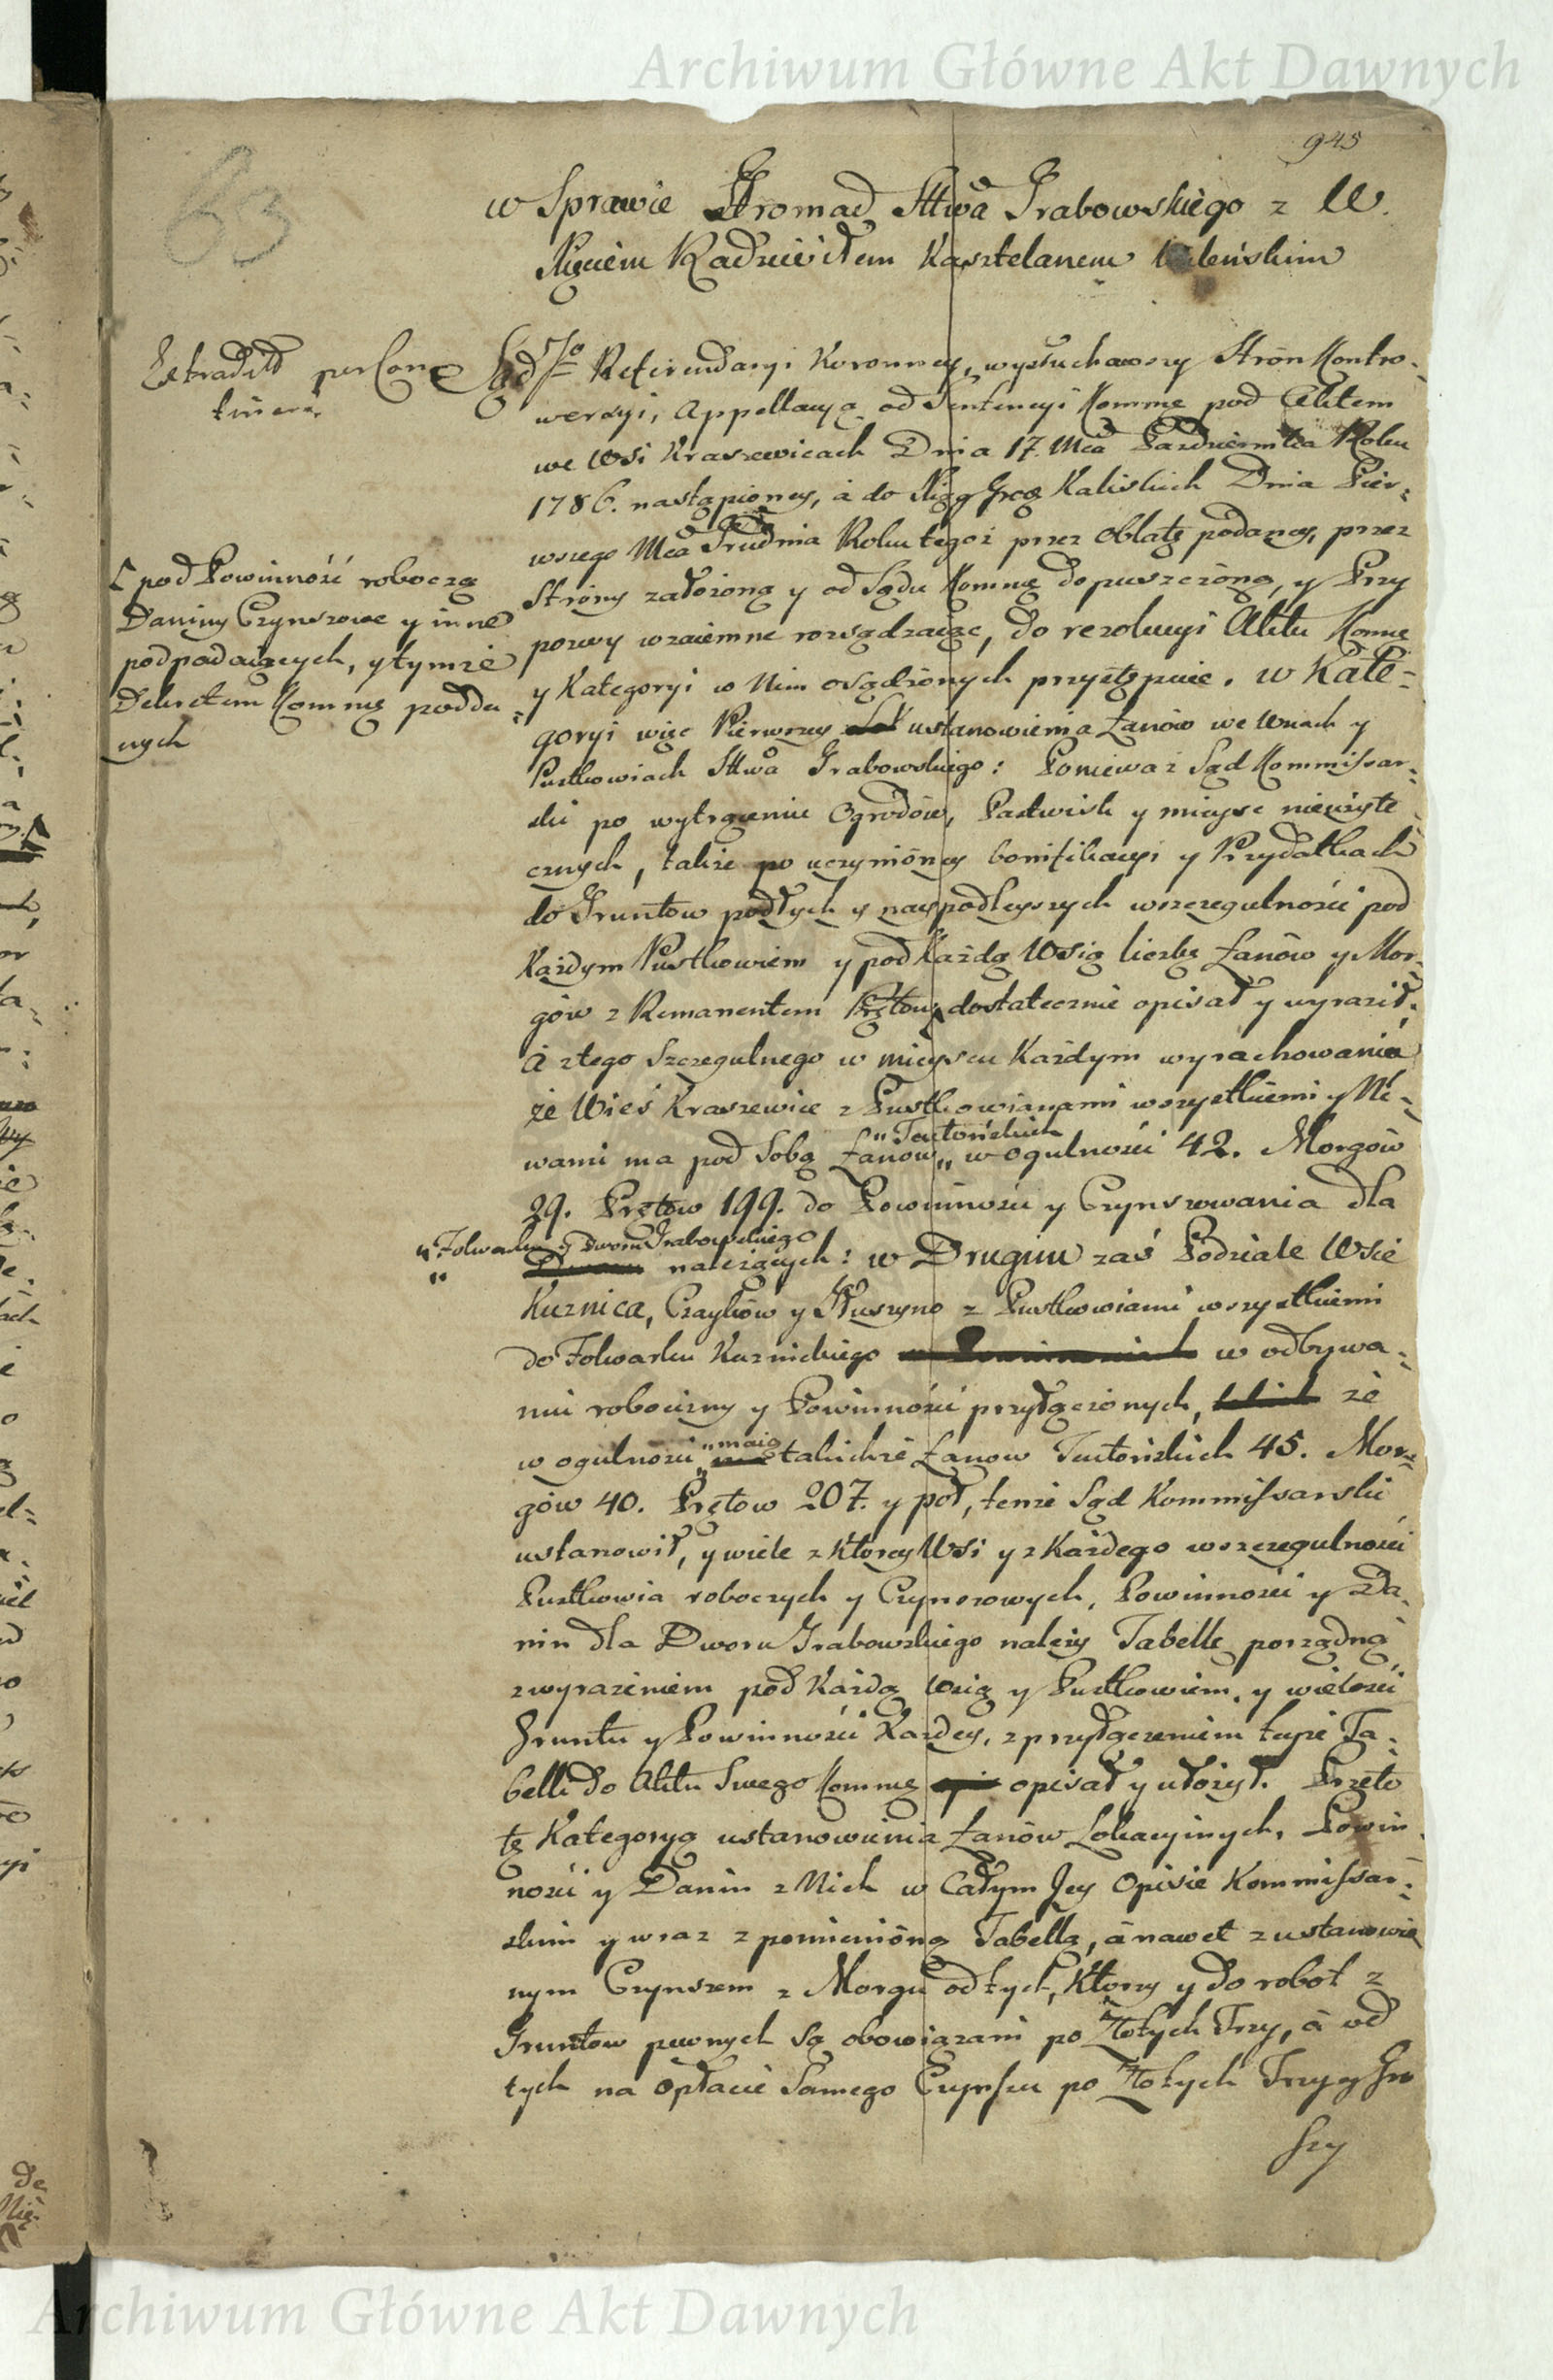 Archiwum Główne Akt Dawnych
945
63
w Sprawie Gromad Sttwa Grabowskiego z W.
Xięciem Radziwiłłem Kasztelanem Wileńskim
Extradit
Sąd Referendaryi Koronney, wysłuchawszy Stron Kontro-
wersyi, Appellacyą od Sentencyi Kommę pod Aktem
we Wsi Kraszewicach Dnia 17. Mca Pazdziernika Roku
1786. nastąpioney, à do Xiąg Kaliskich Dnia Pier-
wszego Mca Grudnia Roku tegoż przez Oblatę podaney, przez
Strony założoną y od Sądu Kommę dopuszczoną, y Przy
pozwy wzaiemne rozsądzaiąc, do rezolucyi Aktu Komme
y Kategoryi w Nim osądzonych przystępuie. w Kate-
goryi więc Pierwszey ustanowienia Łanów we Wsiach y
Pustkowiach Sttwa Grabowskiego: Ponieważ Sąd Kommissar-
ski po wytrąceniu Ogrodów, Pastwisk y mieysc nieużyte
cznych, także po uczynioney bonifikacyi y Przydatkach
do Gruntow podłych y naypodleyszych wszczegulności pod
Każdym Pustkowiem y pod Każdą Wsią liczbę Łanów y Mor-
gów z Remanentem Prętow dostatecznie opisał y wyraził.
à ztego Szczegulnego w mieyscu Każdym wyrachowania
że Wieś Kraszewice z Pustkowianami wszystkiemi y Ni-
"Teutońskich
wami ma pod Sobą Łanow " w ogulności 42. Morgów
29. Prętow 199. do Powinności y Czynszowania dla
"Folwarku y Dworu Grabowskiego
" należących: w Drugim zaś Podziale Wsie
Kuznica, Czayków y Głuszyno z Pustkowiami wszystkiemi
do Folwarku Kuznickiego w odbywa-
niu robocizny y Powinności przyłączonych, że
"maią
w ogulności " takichże Łanow Teutońskich 45. Mor-
gów 40. Prętow 207. y poł, tenże Sąd Kommissarski
ustanowił, y wiele z Ktorey Wsi y z Każdego wszczegulności
Pustkowia roboczych y Czynszowych, Powinności y Da-
nin dla Dworu Grabowskiego należy Tabellę porządną
zwyrażeniem pod Każdą Wsią y Pustkowiem, y wielości
Gruntu y Powinności Każdey, z przyłączeniem teyże Ta-
belli do Aktu Swego Kommę opisał y ułożył. Przeto
tę Kategoryą ustanowienia Łanów Lokacyinych, Powin
ności y Danin z Nich w Całym Jey Opisie Kommissar-
skim y wraz z pomienioną Tabellą, à nawet z ustanowio
nym Czynszem z Morgu od tych, Ktorzy y do robot z
Gruntow pewnych są obowiązani po Złotych Trzy, à od
tych na opłacie Samego Czynszu po Złotych Trzy y Gro
szy
[ pod Powinność roboczą
Daniny Czynszowe y inne
podpadaiących, y tymże
Dekretem Kommę podda
nych
Archiwum Główne Akt Dawnych